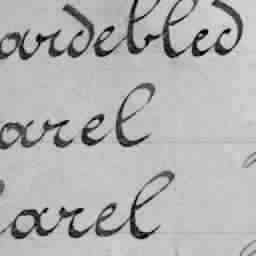 ardebled
arel
arel